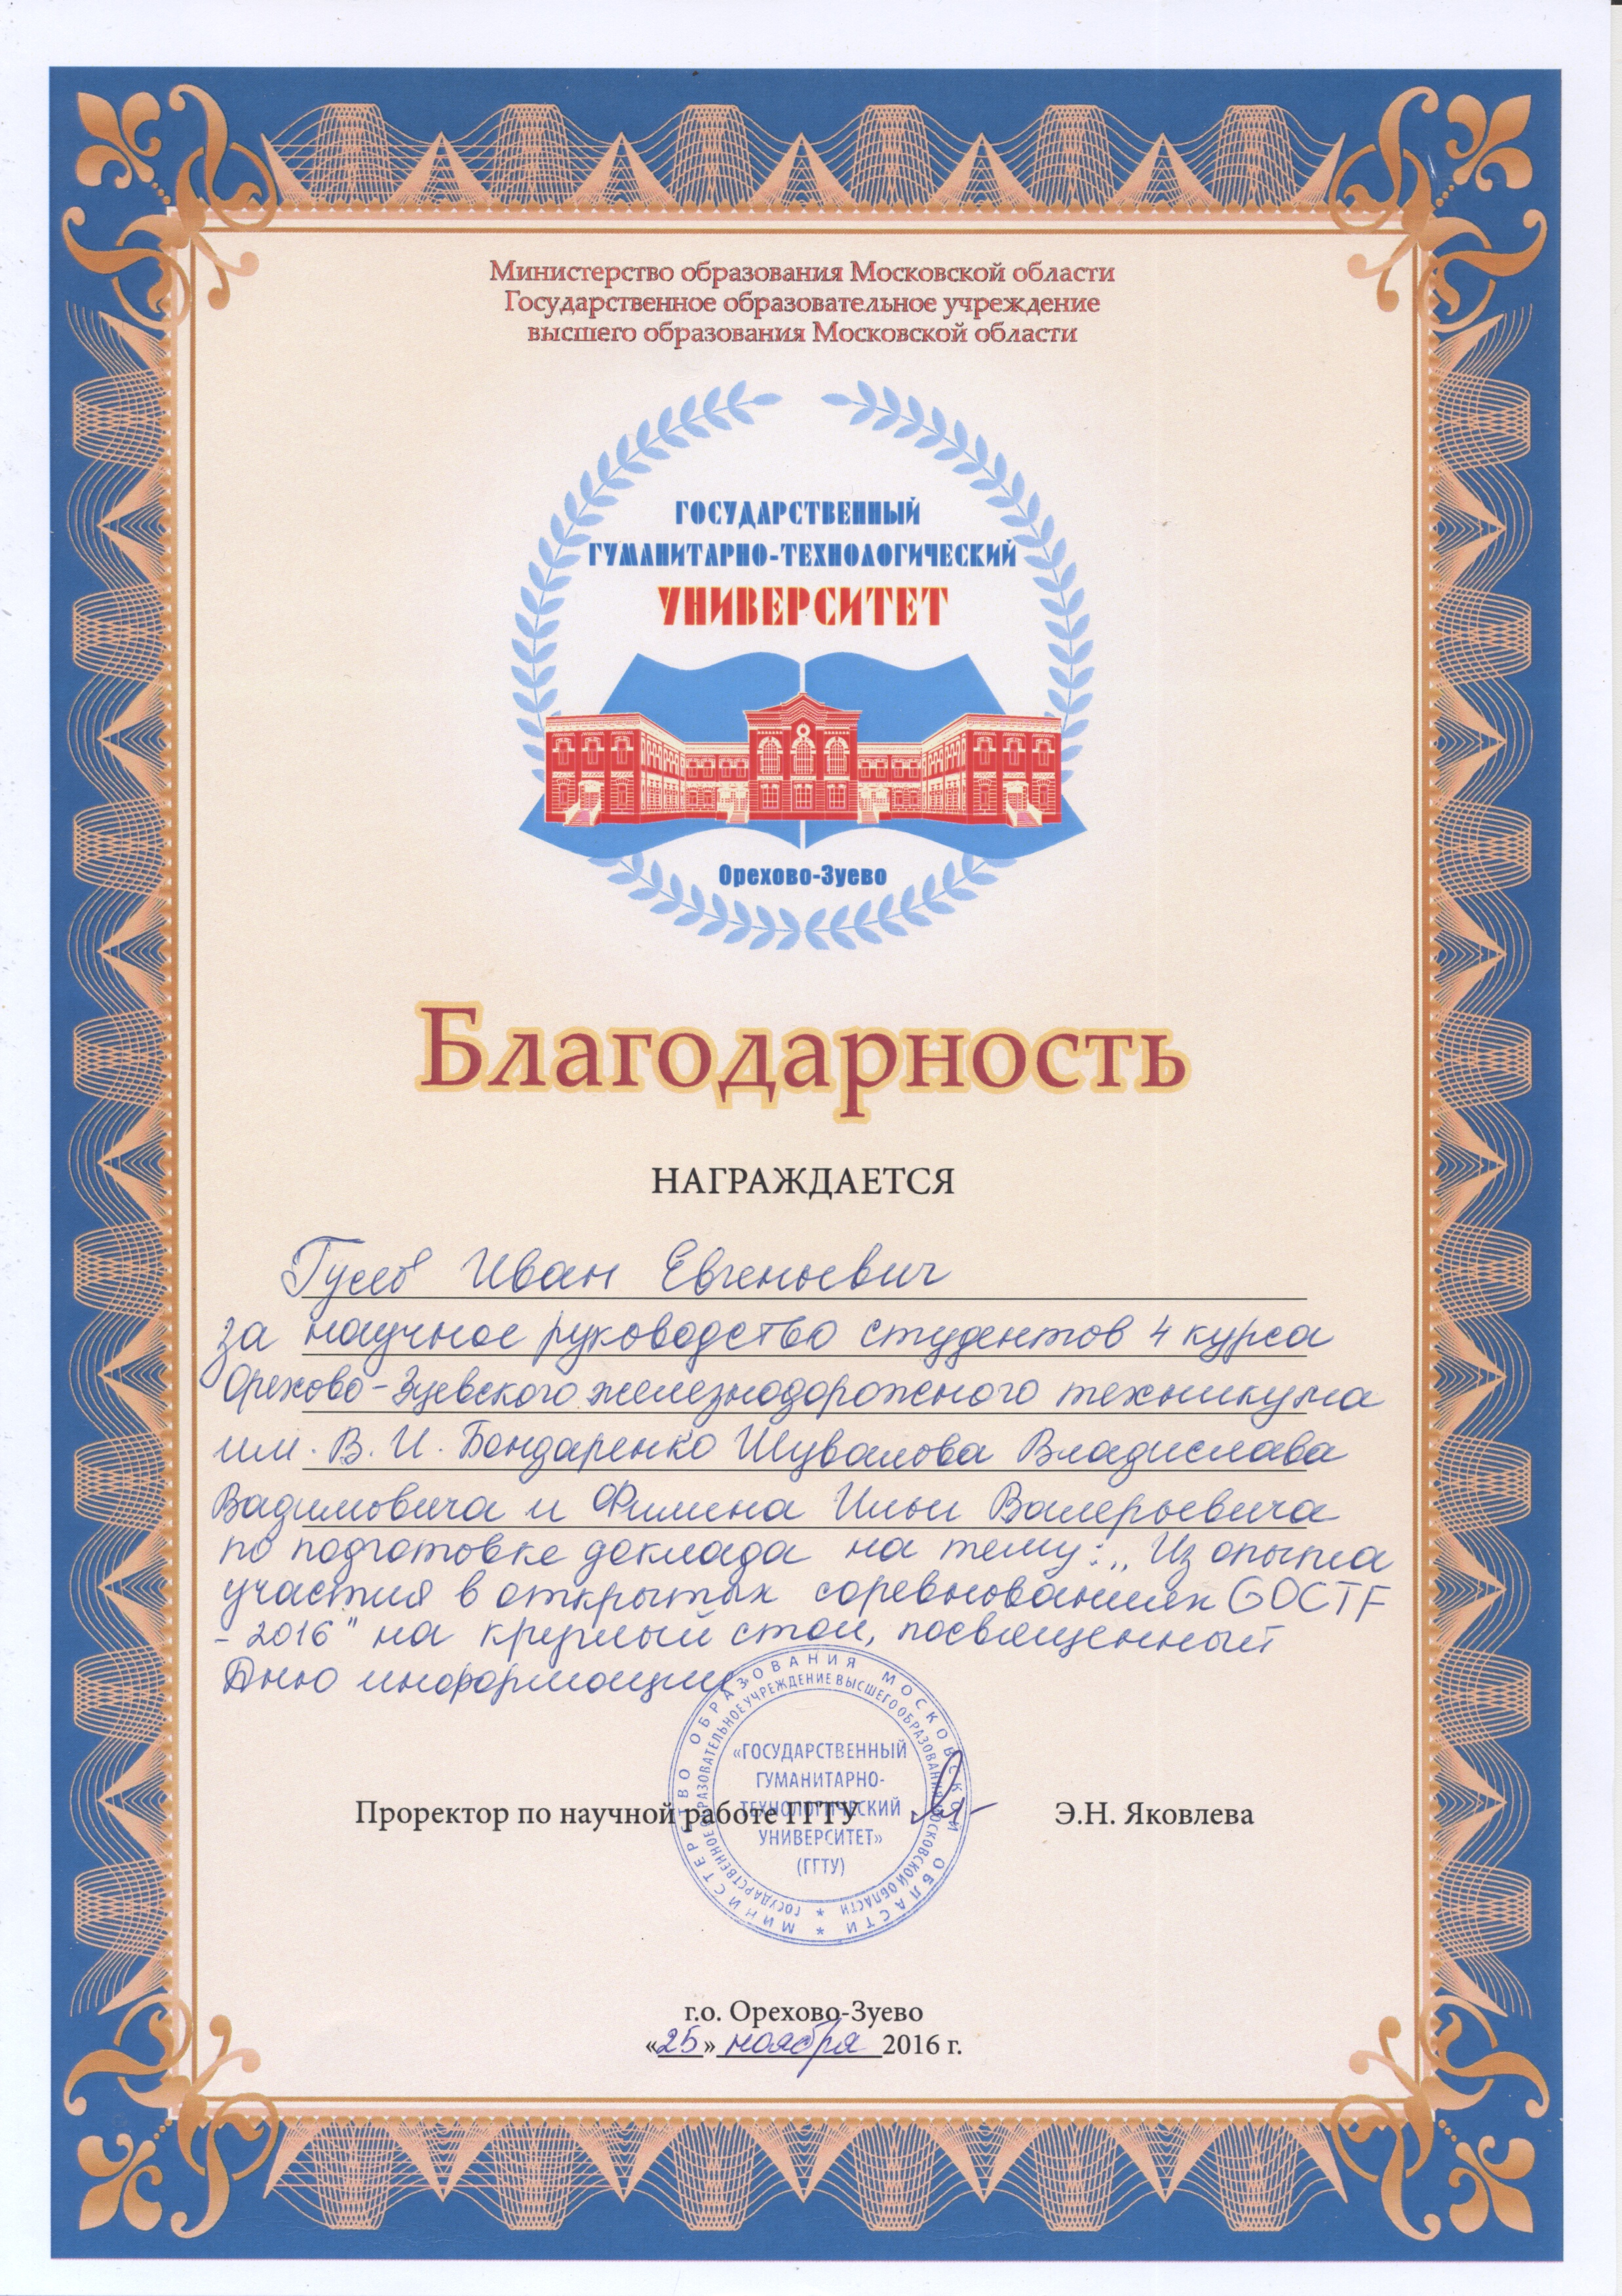 Министерство образования Московской области
Государственное образовательное учреждение
высшего образования Московской области
ГОСУДАРСТВЕННЫЙ
ГУМАНИТАРНО-ТЕХНОЛОГИЧЕСКИЙ
УНИВЕРСИТЕТ
Орехово-Зуево
Благодарность
НАГРАЖДАЕТСЯ
Гусев Иван Евгеньевич
за научное руководство студентов 4 курса
Орехово-Зуевского железнодорожного техникума
им. В. И. Бондаренко Шувалова Владислава
Вадимовича и Филина Ильи Валерьевича
по подготовке доклада на тему: „Из опыта
участия в открытых соревнованиях GOCTF
- 2016" на круглый стол, посвященный
Дню информации
МИНИСТЕРСТВО ОБРАЗОВАНИЯ МОСКОВСКОЙ ОБЛАСТИ *
ГОСУДАРСТВЕННОЕ ОБРАЗОВАТЕЛЬНОЕ УЧРЕЖДЕНИЕ ВЫСШЕГО ОБРАЗОВАНИЯ МОСКОВСКОЙ ОБЛАСТИ *
«ГОСУДАРСТВЕННЫЙ
ГУМАНИТАРНО-
ТЕХНОЛОГИЧЕСКИЙ
УНИВЕРСИТЕТ»
(ГГТУ)
Проректор по научной работе ГГТУ Э.Н. Яковлева
г.о. Орехово-Зуево
«25» ноября 2016 г.